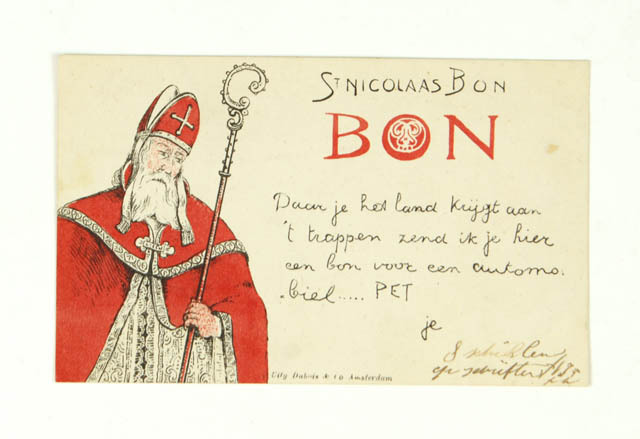 ST NICOLAAS BON
BON
Daar je het land krijgt aan
't trappen zend ik je hier
een bon voor een automo.
.biel..... PET
je
Uitg Dubois & Co Amsterdam